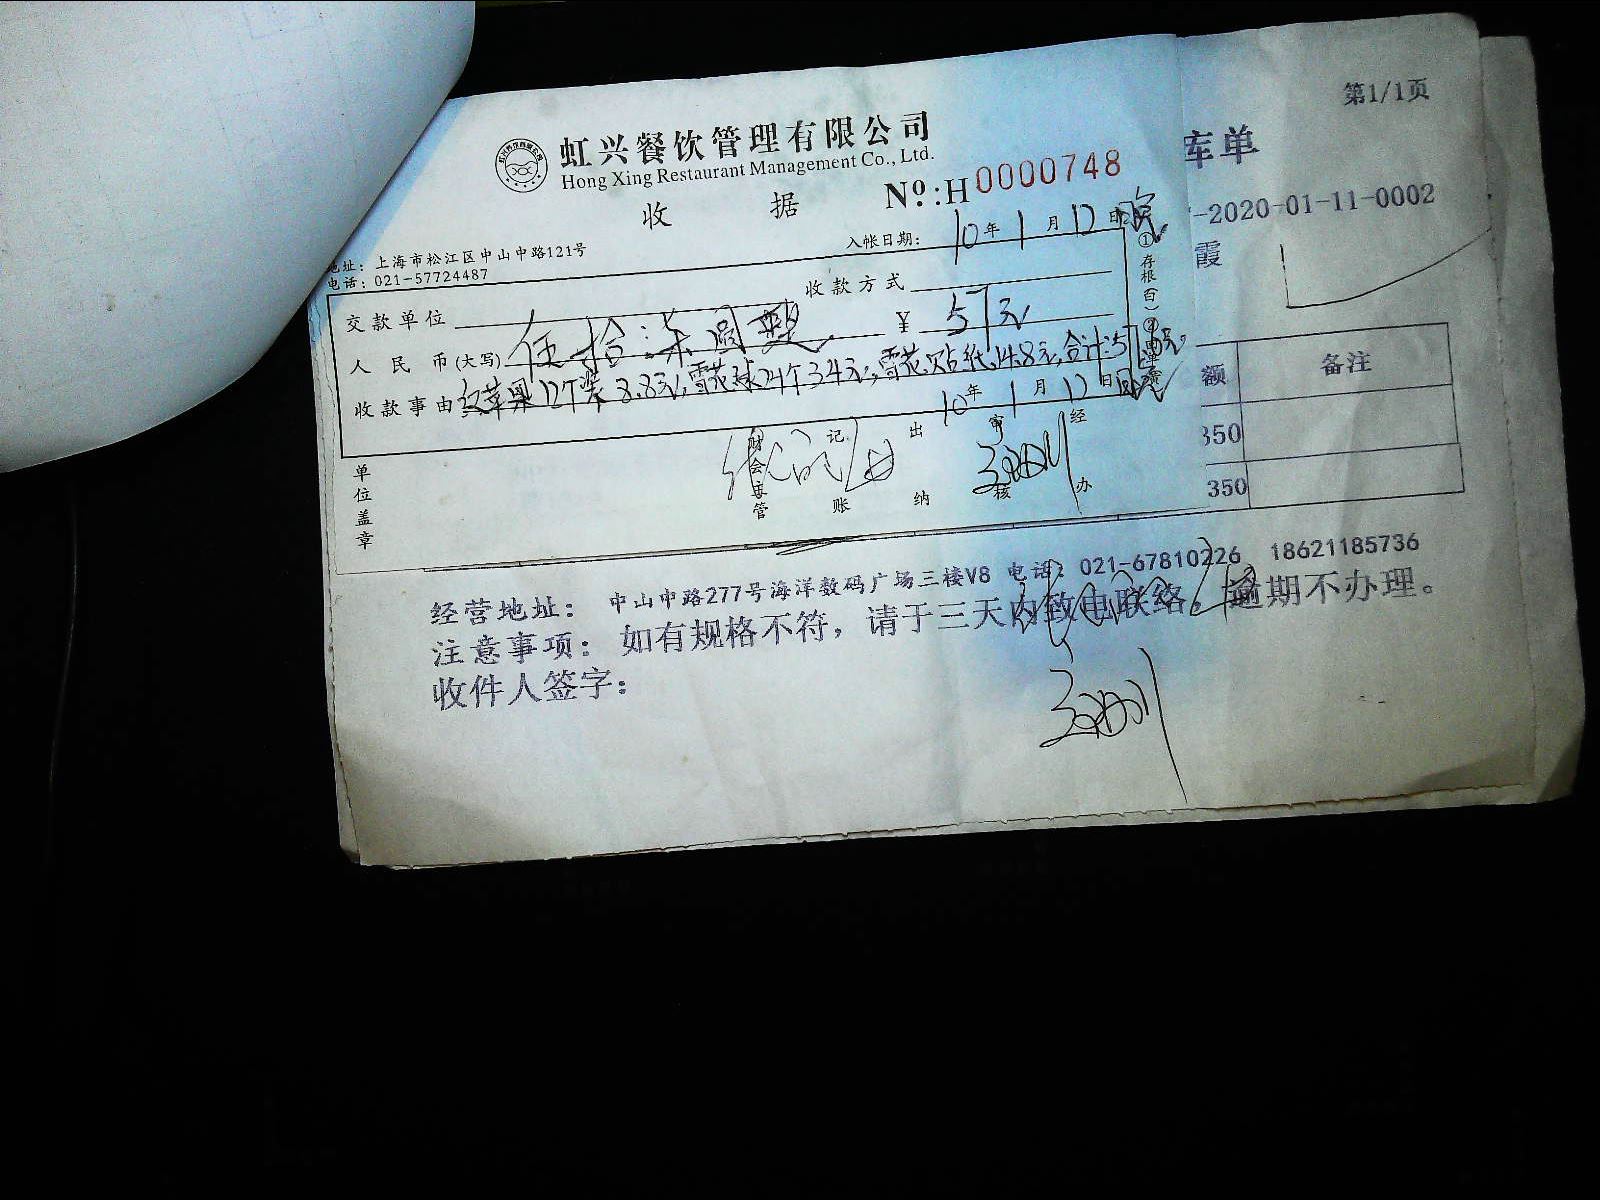 第1/1页
虹兴餐饮管理有限公司
Hong Xing Restaurant Management Co., Ltd.
库单
收 据
№:H0000748
-2020-01-11-0002
霞
地址：上海市松江区中山中路121号
电话：021-57724487
入帐日期： 10年 1月 12日
交款单位
收款方式
人民币(大写) 伍拾柒圆整
¥ 57元
收款事由 红苹果12个装8.8元，雪花球24个34元，雪花贴纸14.8元，合计：57
10年 1月 12日
①存根(白)
额
备注
350
350
单位盖章
财会主管
记账
出纳
审核
经办
经营地址： 中山中路277号海洋数码广场三楼V8 电话：021-67810226 18621185736
注意事项：如有规格不符，请于三天内致电联络，逾期不办理。
收件人签字：